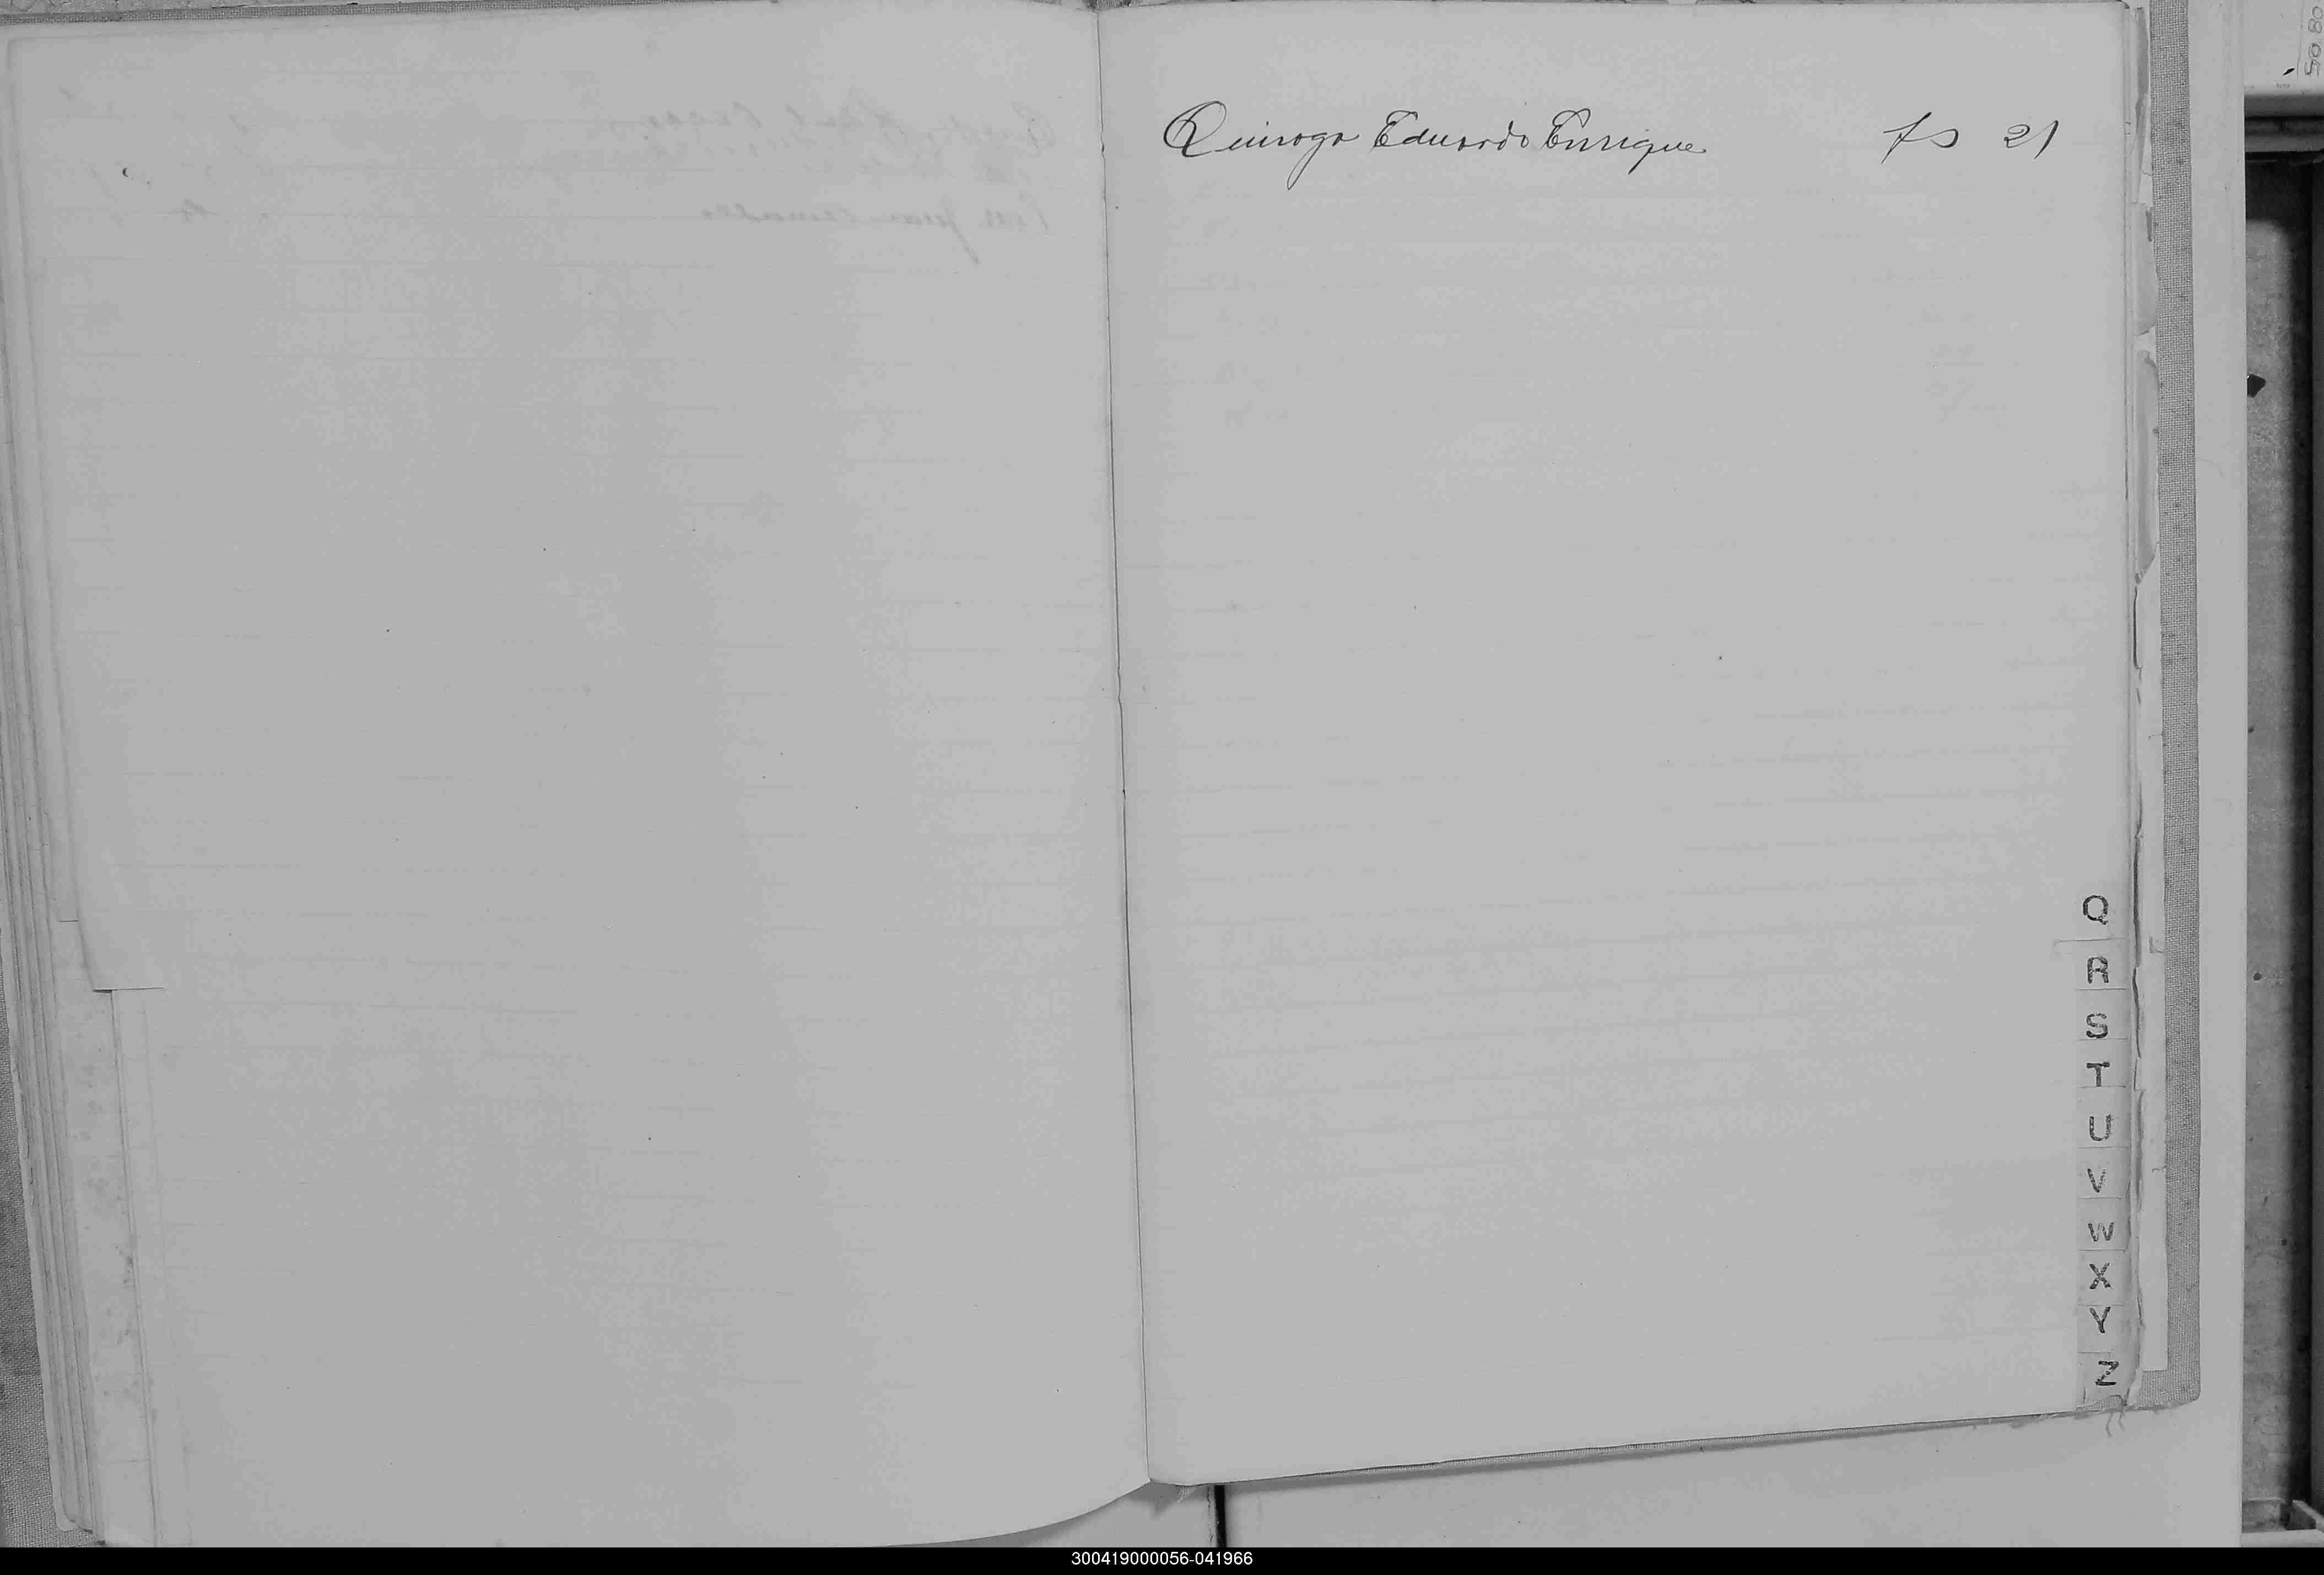 Quiroga Eduardo Enrique fs 21
Q
R
S
T
U
V
W
X
Y
Z
300419000056-041966